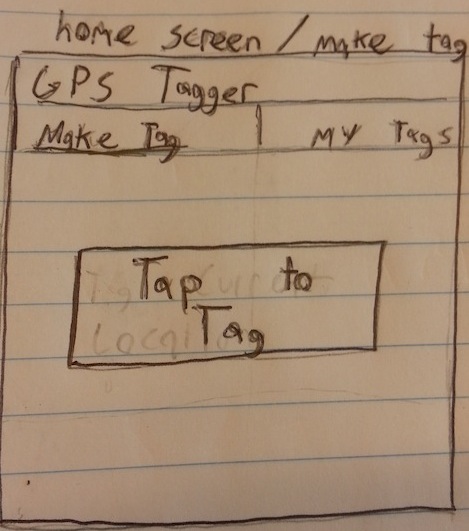 home screen / make tag
GPS Tagger
Make Tag | My Tags
Tap to
Tag